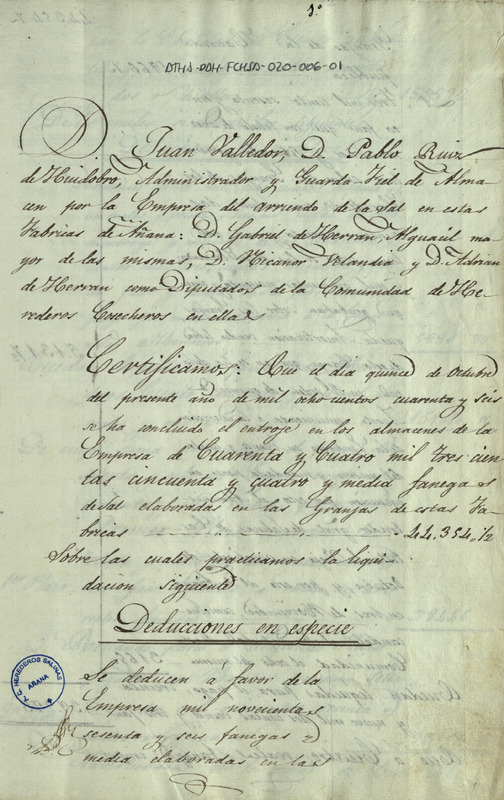 1º
DTHS-DDH-FCHSD-020-006-01
D. Juan Valledor, D. Pablo Ruiz
de Huidobro, Administrador y Guarda Fiel de Alma
cen por la Empresa del arriendo de la Sal en estas
Fabricas de Añana: D. Gabriel de Herran, Alguacil ma
yor de las mismas, D. Nicanor Velandia y D. Adrian
de Herran como Diputados de la Comunidad de He-
rederos Cosecheros en ellas
Certificamos: Que el dia quince de Octubre
del presente año de mil ochocientos cuarenta y seis
se ha concluido el entroje en los almacenes de la
Empresa de Cuarenta y Cuatro mil tres cien
tas cincuenta y cuatro y media fanegas
de Sal elaboradas en las Granjas de estas Fa-
bricas 44.354.,1/2
Sobre las cuales practicamos la liqui-
dacion siguiente
Deducciones en especie
Se deducen á favor de la
Empresa mil novecientas
sesenta y seis fanegas y
media elaboradas en las
HEREDEROS SALINAS
AÑANA